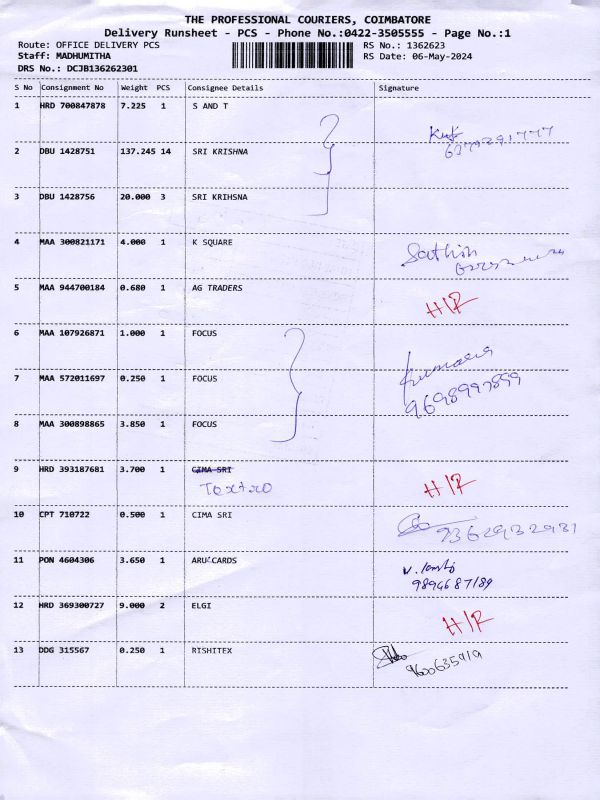 THE PROFESSIONAL COURIERS, COIMBATORE
Delivery Runsheet - PCS - Phone No.:0422-3505555 - Page No.:1
Route: OFFICE DELIVERY PCS
RS No.: 1362623
Staff: MADHUMITHA
RS Date: 06-May-2024
DRS No.: DCJB136262301
S No Consignment No Weight PCS Consignee Details Signature
1 HRD 700847878 7.225 1 S AND T
6379291777
2 DBU 1428751 137.245 14 SRI KRISHNA
3 DBU 1428756 20.000 3 SRI KRIHSNA
4 MAA 300821171 4.000 1 K SQUARE
Sathish
5 MAA 944700184 0.680 1 AG TRADERS
H/R
6 MAA 107926871 1.000 1 FOCUS
7 MAA 572011697 0.250 1 FOCUS
Kumar
9698997899
8 MAA 300898865 3.850 1 FOCUS
9 HRD 393187681 3.700 1 CIMA SRI
H/R
10 CPT 710722 0.500 1 CIMA SRI
9362932931
11 PON 4604306 3.650 1 ARU CARDS
9894687189
12 HRD 369300727 9.000 2 ELGI
H/R
13 DDG 315567 0.250 1 RISHITEX
9600635919